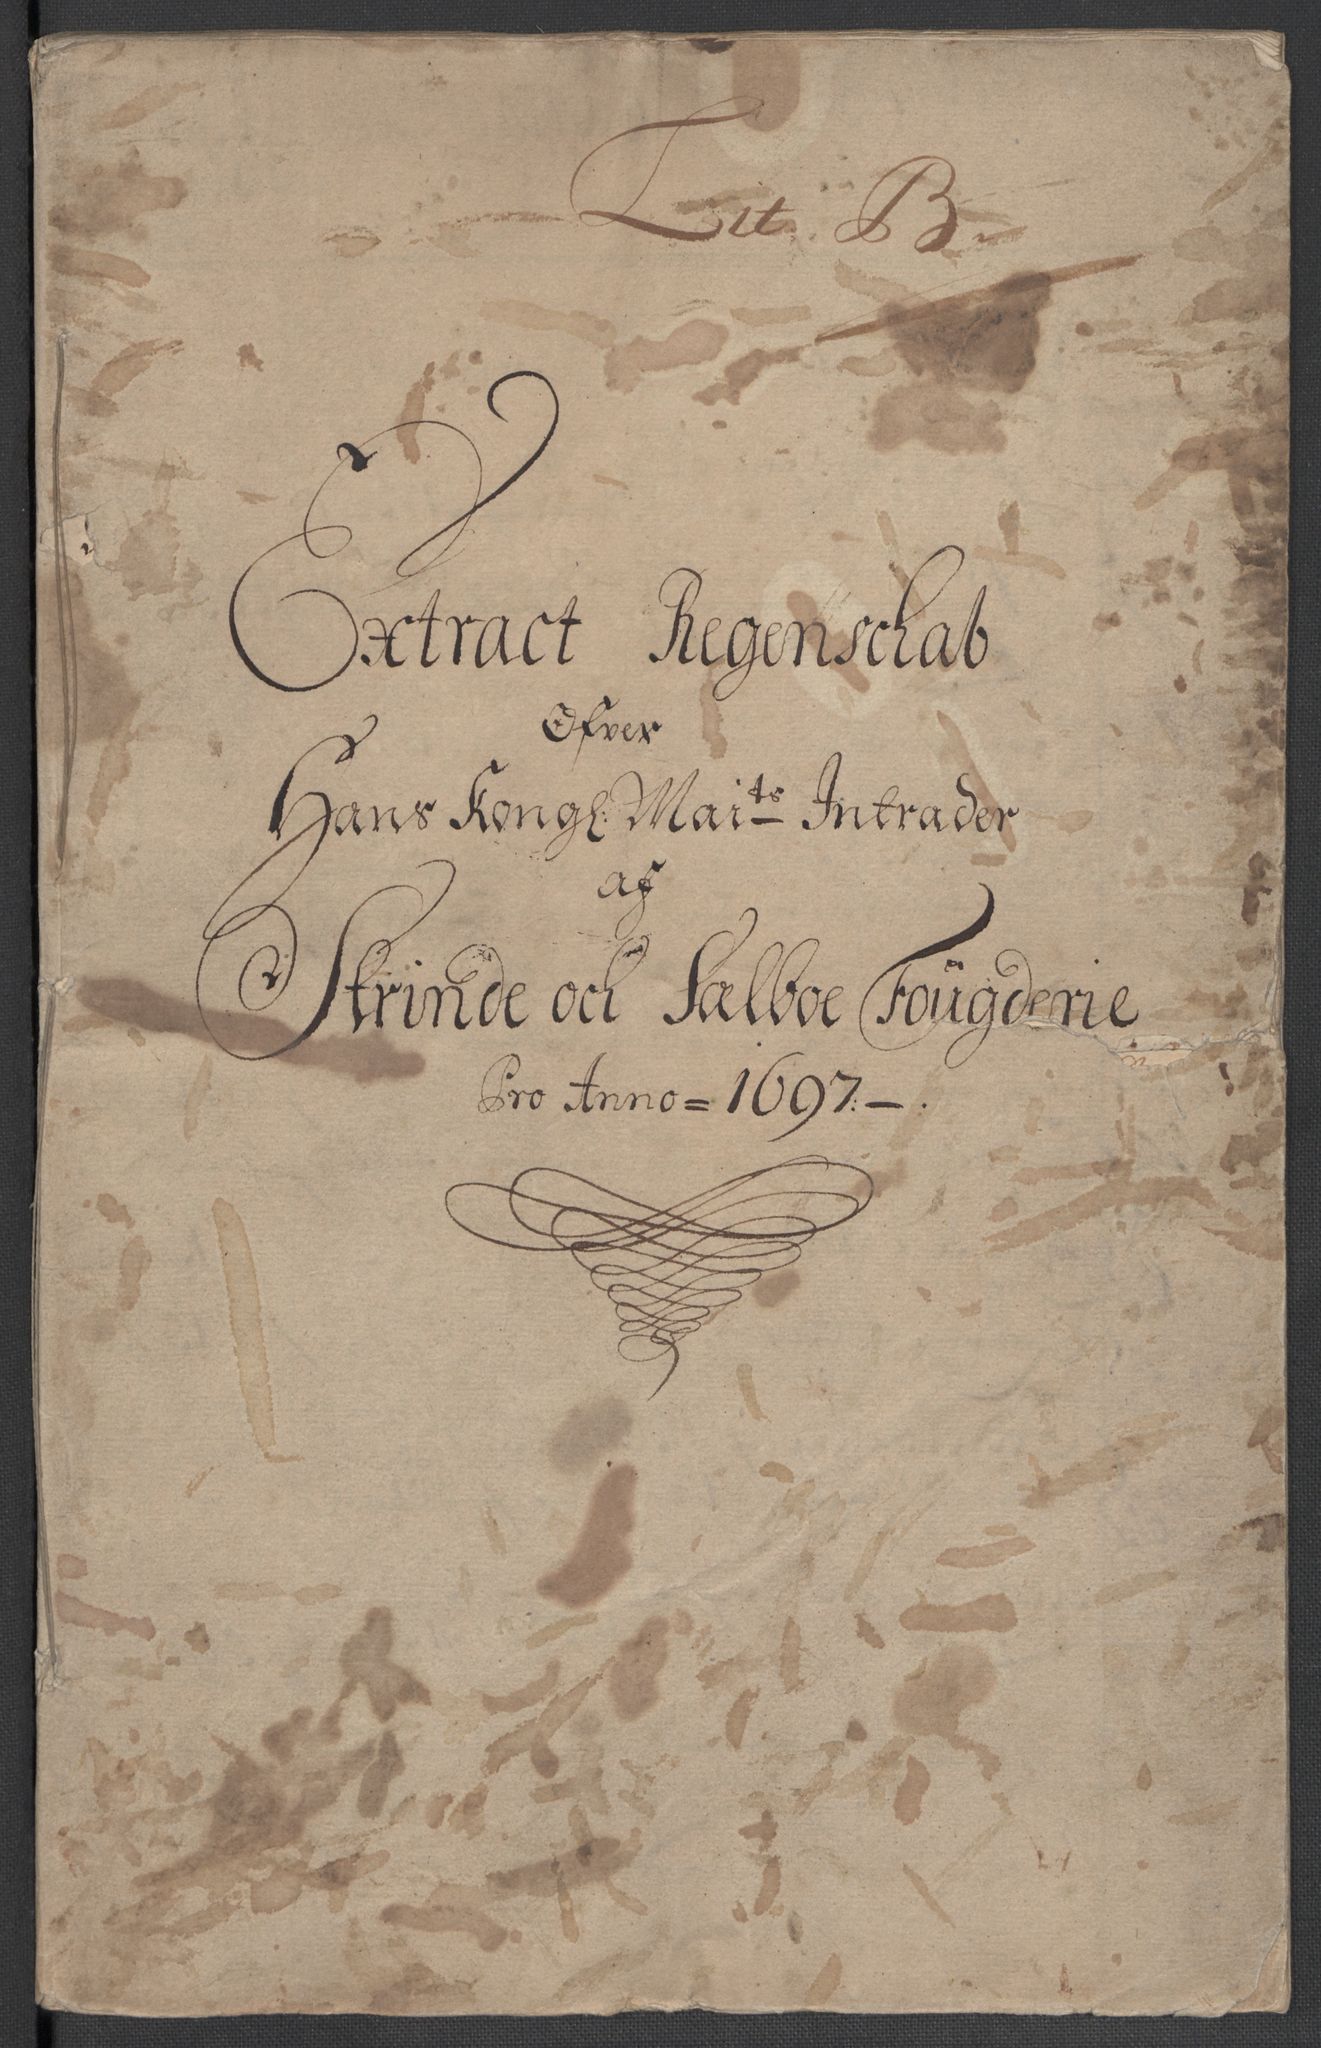 Lit. B.
Extract Regenschab
Ofver
Hans Kongl: Maits Intrader
af
Strinde och Sælboe Foügderie
Pro Anno = 1697:-.